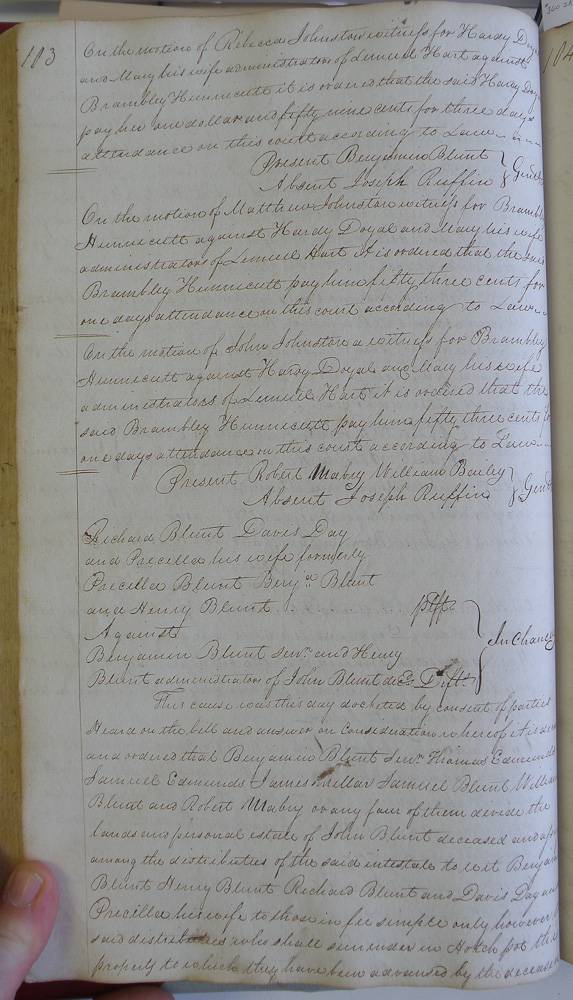 103
On the motion of Rebecca Johnston witness for Hardy Doyal
and Mary his wife administrators of Lemuel Hart against
Brambley Hunnicutt it is ordered that the said Hardy Doyal
pay her one dollar and fifty nine cents for three days
attendance on this court according to Law
Present Benjamin Blunt
Absent Joseph Ruffin } Gent
On the motion of Matthew Johnston witness for Brambley
Hunnicutt against Hardy Doyal and Mary his wife
administrators of Lemuel Hart it is ordered that the said
Brambley Hunnicutt pay him fifty three cents for
one days attendance on this court according to Law
On the motion of John Johnston a witness for Brambley
Hunnicutt against Hardy Doyal and Mary his wife
administrators of Lemuel Hart it is ordered that the
said Brambley Hunnicutt pay him fifty three cents for
one days attendance on this court according to Law
Present Robert Mabry William Bailey
Absent Joseph Ruffin } Gent
Richard Blunt Davis Day
and Precilla his wife formerly
Precilla Blunt Benja Blunt
and Henry Blunt plffs
Against
Benjamin Blunt senr. and Henry
Blunt administrators of John Blunt decd Defts
} In Chancy
This cause was this day docketed by consent of parties
Heard on the bill and answer on Consideration whereof it is
and ordered that Benjamin Blunt Senr. Thomas Edmunds
Samuel Edmunds James Millar Samuel Blunt William
Blunt and Robert Mabry or any four of them divide the
lands and personal estate of John Blunt deceased and
among the distributees of the said intestate to wit Benjamin
Blunt Henry Blunt Richard Blunt and Davis Day and
Precilla his wife to those in fee simple only however
said distributees who shall surrender in Hotch pot the
property to which they have been advanced by the deceased
104